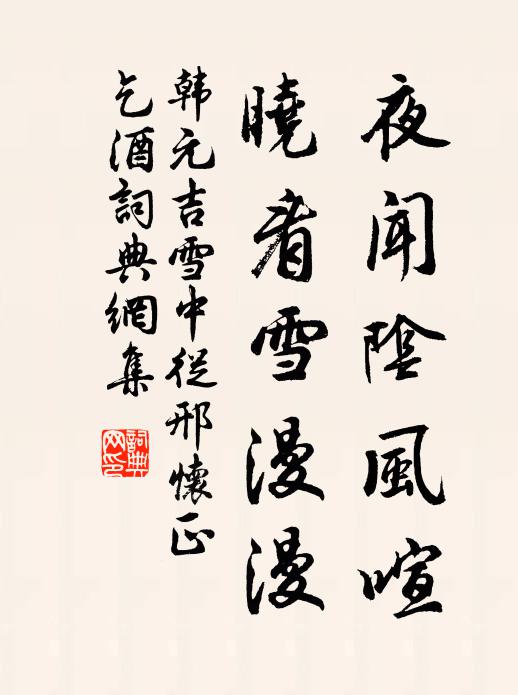 夜闻陰風喧
曉看雪漫漫
韩元吉雪中從邢懷正
乞酒詞典網集
詞典
网印